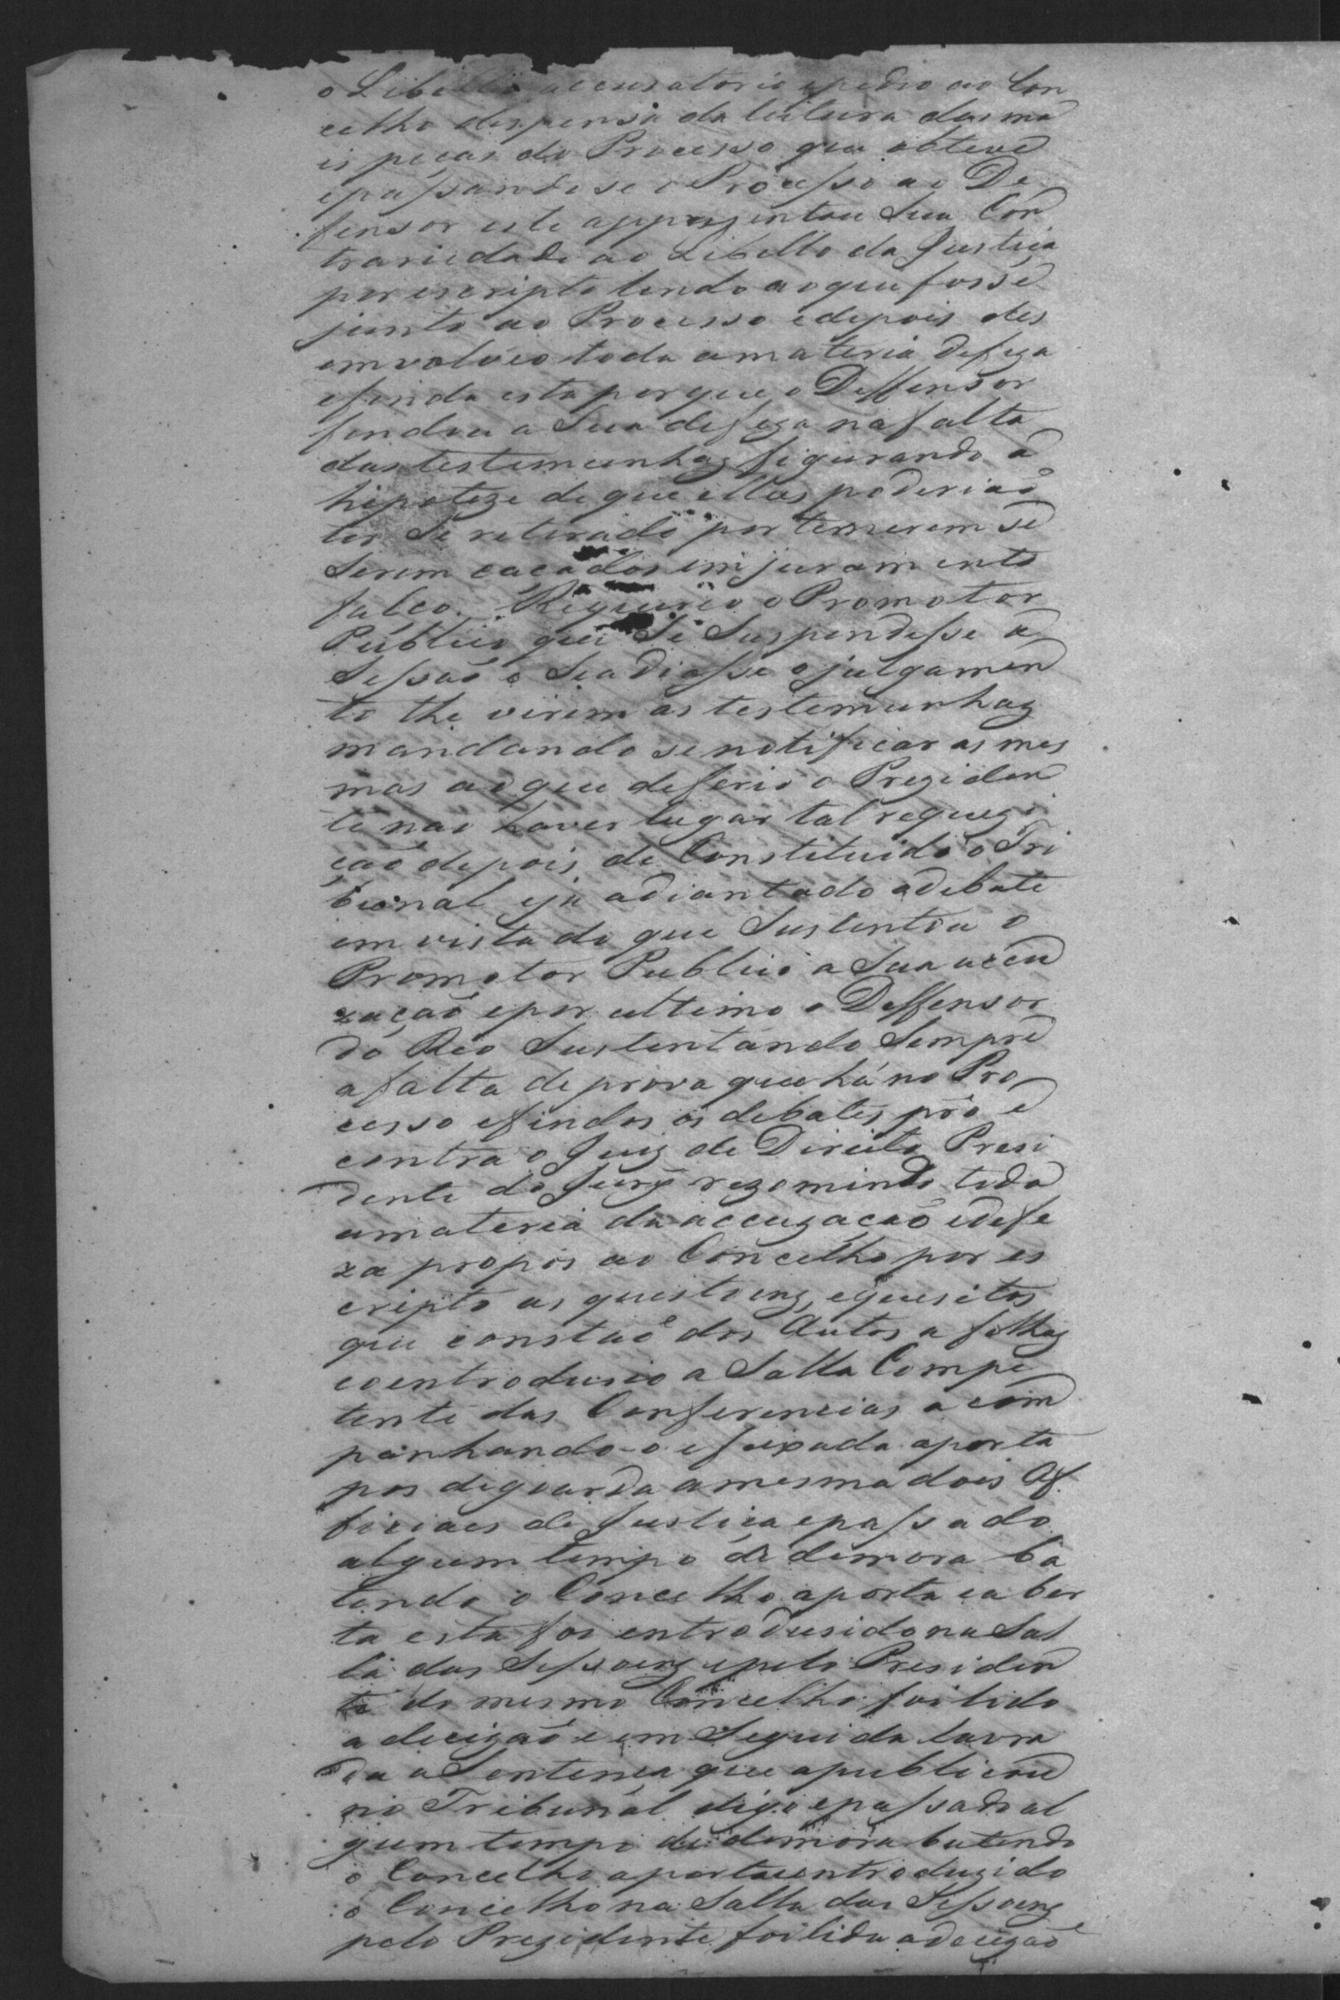 o Libello accusatorio e pedio ao Con
celho dispensa da leitura das ma
is peças do Processo que obteve
epassandose o Processo ao De
fensor este apprezentou Sua Con
trariedade ao Libello da Justiça
por escripto lendo ao que fosse
junto ao Processo edepois des
emvolvio toda amateria defeza
efinda esta porque o Deffensor
fundou a Sua defeza nafalta
das testemunhaz figurando a
hipoteze de que ellas poderiaõ
ter Se retirado por temerem se
Serem caçados em juramento
falço. Requereo o Promotor
Publico que Se Suspendesse a
Sessaõ e Seadiasse ojulgamen
to the virem as testemunhaz
mandando se notificar as mes
mas ao que deferio o Preziden
te naõ haver lugar tal requezi
çaõ depois de Constituido o Tri
bunal eja adiantado odebate
em vista do que Sustentou o
Promotor Publico a Sua accu
zaçaõ epor ultimo o Deffensor
do Reo Sustentando Sempre
afalta de prova que há no Pro
cesso efindos os debates pró e
contra o Juiz de Direito Presi
dente do Jury rezomindo toda
amateria da accuzaçaõ edefe
za propos ao Concelho por es
cripto as questoenz, equesitos
que constaõ dos Autos a folhaz
eoentrodusio a Salla Compe
tente das Conferencias acom
panhando-o efeixada aporta
pos deguarda amesma dois Of
ficiaes de Justiça epassado
algum tempo de demora ba
tendo o Concelho aporta eaber
ta esta foi entrodusidona Sal
la das Sessoenz epelo Presiden
te do mesmo Concelho foi lido
adecizaõ e em Seguida lavra
da a Sentença que apublicou
no Tribunal digo epassado al
gum tempo de demora batendo
o Concelho aporta entroduzido
o Concelho na Salla das Sessoenz
pelo Prezidente foi lida adecizaõ